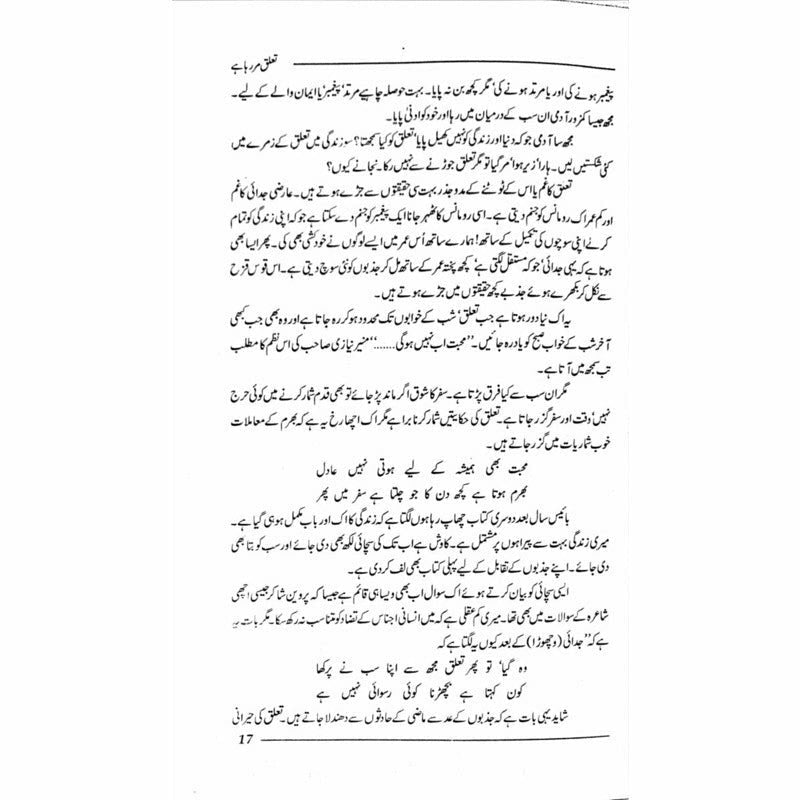 تعلق مر رہا ہے
پیغمبر ہونے کی اور یا مرتد ہونے کی‘ مگر کچھ بن نہ پایا۔ بہت حوصلہ چاہیے مرتد‘ پیغمبر‘ یا ایمان والے کے لیے۔
مجھ جیسا کمزور آدمی ان سب کے درمیان میں رہا اور خود کو ادنیٰ پایا۔
مجھ سا آدمی جو کہ دنیا اور زندگی کو نہیں کھیل پایا‘ تعلق کو کیا سمجھتا؟ سو زندگی میں تعلق کے زمرے میں
کئی شکستیں لیں۔ ہارا‘ زیر ہوا‘ مر گیا تو مگر تعلق جوڑنے سے نہیں رکا۔ نجانے کیوں؟
تعلق کا غم یا اس کے ٹوٹنے کے مد و جذر بہت سی حقیقتوں سے جڑے ہوتے ہیں۔ عارضی جدائی کا غم
اور کم عمر اک رومانس کو جنم دیتی ہے۔ اسی رومانس کا ٹھہر جانا ایک پیغمبر کو جنم دے سکتا ہے جو کہ اپنی زندگی کو تمام
کرنے اپنی سوچوں کی تکمیل کے ساتھ! ہمارے ساتھ اُس عمر میں ایسے لوگوں نے خودکشی بھی کی۔ پھر ایسا بھی
ہوتا ہے کہ یہی جدائی‘ جو کہ مستقل لگتی ہے‘ کچھ پختہ عمر کے ساتھ مل کر جذبوں کو نئی سوچ دیتی ہے۔ اس قوس قزح
سے نکل کر بکھرے ہوئے جذبے کچھ حقیقتوں میں جڑے ہوتے ہیں۔
یہ اک نیا دور ہوتا ہے جب تعلق‘ شب کے خوابوں تک محدود ہو کر رہ جاتا ہے اور وہ بھی جب کبھی
آخر شب کے خواب صبح کو یاد رہ جائیں۔ ’’محبت اب نہیں ہو گی......‘‘ منیر نیازی صاحب کی اس نظم کا مطلب
تب سمجھ میں آتا ہے۔
مگر ان سب سے کیا فرق پڑتا ہے۔ سفر کا شوق اگر ماند پڑ جائے تو بھی قدم شمار کرنے میں کوئی حرج
نہیں‘ وقت اور سفر گزر جاتا ہے۔ تعلق کی حکایتیں شمار کرنا برا ہے مگر اک اچھا رخ یہ ہے کہ بھرم کے معاملات
خوب شماریات میں گزر جاتے ہیں۔
محبت بھی ہمیشہ کے لیے ہوتی نہیں عادل
بھرم ہوتا ہے کچھ دن کا جو چلتا ہے سفر میں پھر
بائیس سال بعد دوسری کتاب چھاپ رہا ہوں لگتا ہے کہ زندگی کا اک اور باب مکمل ہو ہی گیا ہے۔
میری زندگی بہت سے پیراہوں پر مشتمل ہے۔ کاوش ہے اب تک کی سچائی لکھ بھی دی جائے اور سب کو بتا بھی
دی جائے۔ اپنے جذبوں کے تقابل کے لیے پہلی کتاب بھی لف کر دی ہے۔
ایسی سچائی کو بیان کرتے ہوئے اک سوال اب بھی ویسا ہی قائم ہے جیسا کہ پروین شاکر جیسی اچھی
شاعرہ کے سوالات میں بھی تھا۔ میری کم عقلی ہے کہ میں انسانی اجناس کے تضاد کو متناسب نہ رکھ سکا۔ مگر بات یہ
ہے کہ ’’جدائی (وچھوڑا) کے بعد کیوں یہ لگتا ہے کہ
وہ گیا‘ تو پھر تعلق مجھ سے اپنا سب نے پرکھا
کون کہتا ہے بچھڑنا کوئی رسوائی نہیں ہے
شاید یہی بات ہے کہ جذبوں کے عدسے ماضی کے حادثوں سے دھندلا جاتے ہیں۔ تعلق کی حیرانی
17